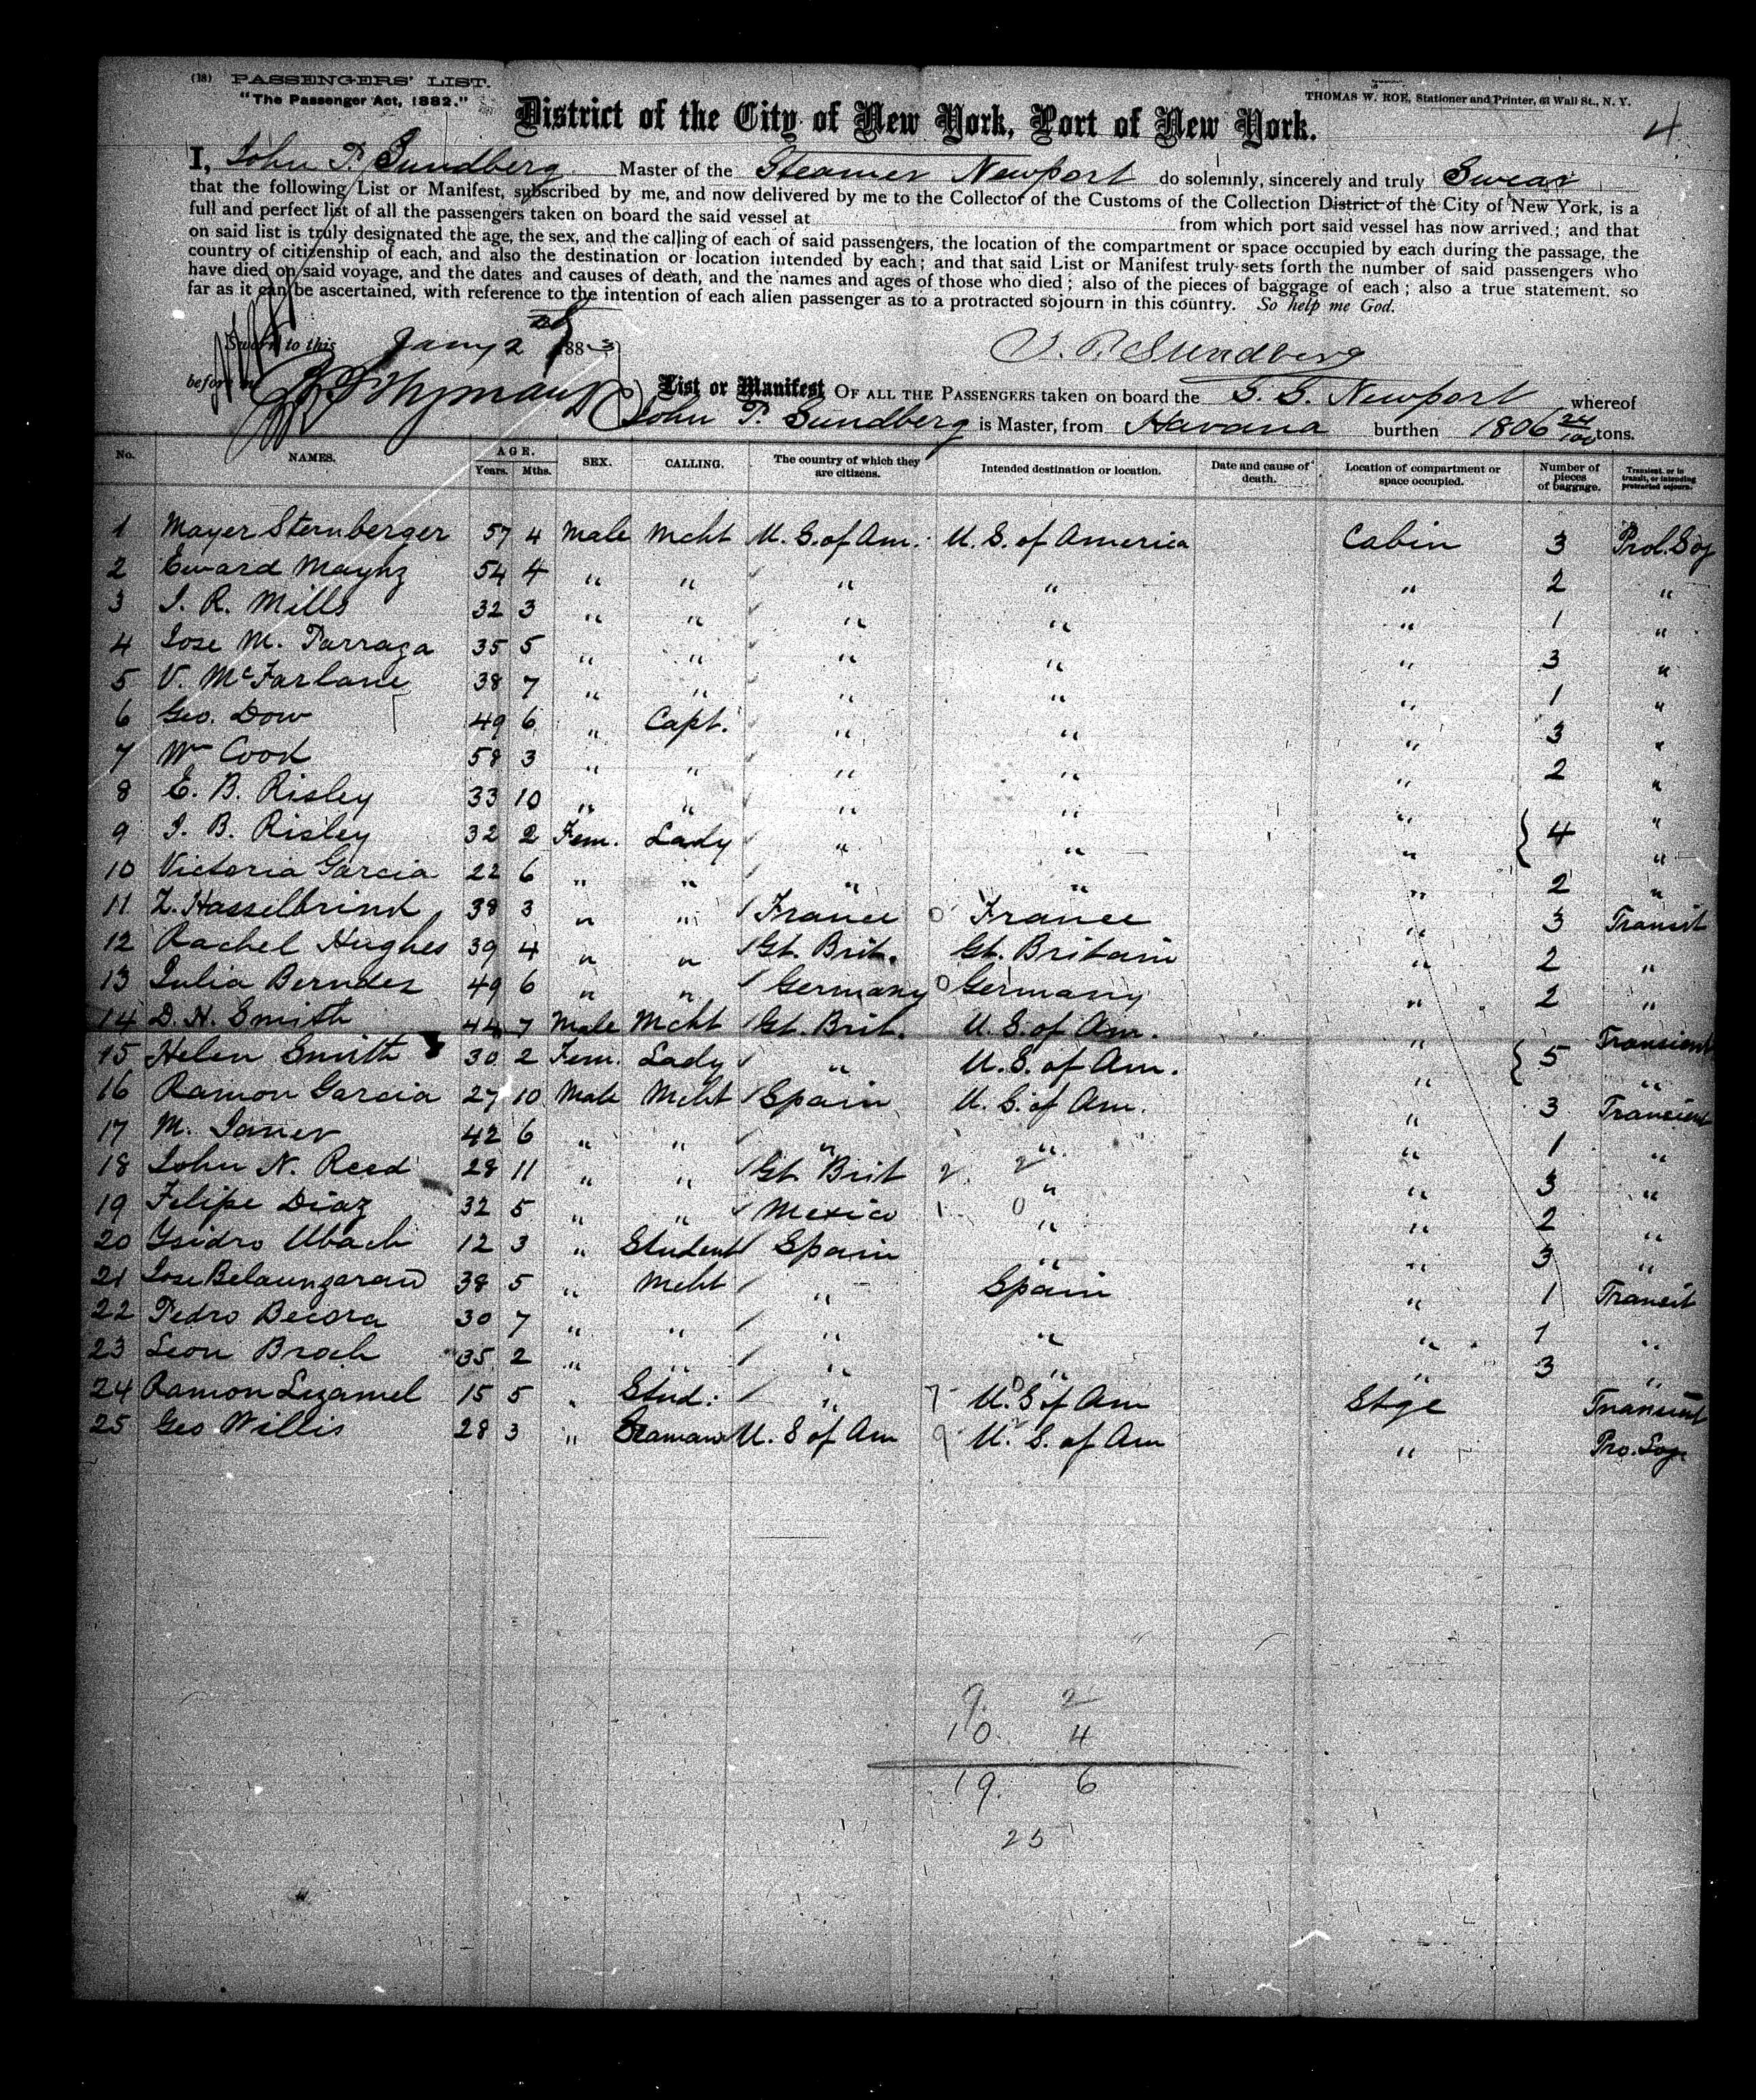 (18) PASSENGERS' LIST.
"The Passenger Act, 1882."
THOMAS W. ROE, Stationer and Printer, 63 Wall St., N. Y.
4
District of the City of New York, Port of New York.
I, John P. Sundberg Master of the Steamer Newport do solemnly, sincerely and truly Swear
that the following List or Manifest, subscribed by me, and now delivered by me to the Collector of the Customs of the Collection District of the City of New York, is a
full and perfect list of all the passengers taken on board the said vessel at from which port said vessel has now arrived; and that
on said list is truly designated the age, the sex, and the calling of each of said passengers, the location of the compartment or space occupied by each during the passage, the
country of citizenship of each, and also the destination or location intended by each; and that said List or Manifest truly sets forth the number of said passengers who
have died on said voyage, and the dates and causes of death, and the names and ages of those who died; also of the pieces of baggage of each; also a true statement, so
far as it can be ascertained, with reference to the intention of each alien passenger as to a protracted sojourn in this country. So help me God.
Sworn to this Jany 2 1883
J. P. Sundberg
before
List or Manifest OF ALL THE PASSENGERS taken on board the S. S. Newport whereof
John P. Sundberg is Master, from Havana burthen 1806 24/100 tons.
No. NAMES. AGE. Years. Mths. SEX. CALLING. The country of which they are citizens. Intended destination or location. Date and cause of death. Location of compartment or space occupied. Number of pieces of baggage. Transient, or in transit, or intending protracted sojourn.
1 Mayer Sternberger 57 4 Male Mcht U. S. of Am. U. S. of America Cabin 3 Prot. Soj
2 Edward Maynz 54 4 " " " " " 2 "
3 I. R. Mills 32 3 " " " " " 1 "
4 Jose M. Parraga 35 5 " " " " " 3 "
5 V. McFarlane 38 7 " " " " " 1 "
6 Geo. Dow 49 6 " Capt. " " " 3 "
7 Wm Cook 58 3 " " " " " 2 "
8 E. B. Risley 33 10 " " " " " "
9 I. B. Risley 32 2 Fem. Lady " " " } 4 "
10 Victoria Garcia 22 6 " " " " " 2 "
11 Z. Hasselbrink 38 3 " " France 0 France " 3 Transit
12 Rachel Hughes 39 4 " " Gt. Brit. Gt. Britain " 2 "
13 Julia Berndes 49 6 " " Germany 0 Germany " 2 "
14 D. H. Smith 44 7 Male Mcht Gt. Brit. U. S. of Am. " Transient
15 Helen Smith 30 2 Fem. Lady " U. S. of Am. " { 5 "
16 Ramon Garcia 27 10 Male Mcht Spain U. S. of Am. " 3 Transient
17 M. Janer 42 6 " " " " " 1 "
18 John N. Reed 28 11 " " Gt Brit 2 2 " " 3 "
19 Felipe Diaz 32 5 " " Mexico 1 0 " " 2 "
20 Ysidro Ubach 12 3 " Student Spain " " 3 "
21 Jose Belaunzaran 38 5 " Mcht " Spain " 1 Transit
22 Pedro Becora 30 7 " " " " " 1 "
23 Leon Broch 35 2 " " " " " 3 "
24 Ramon Lizamel 15 5 " Stud. " 7 0 U. S of Am Stge Transient
25 Geo Willis 28 3 " Seaman U. S of Am 9 2 U. S. of Am " Pro. Soj.
9. 2
10. 4
19. 6
25